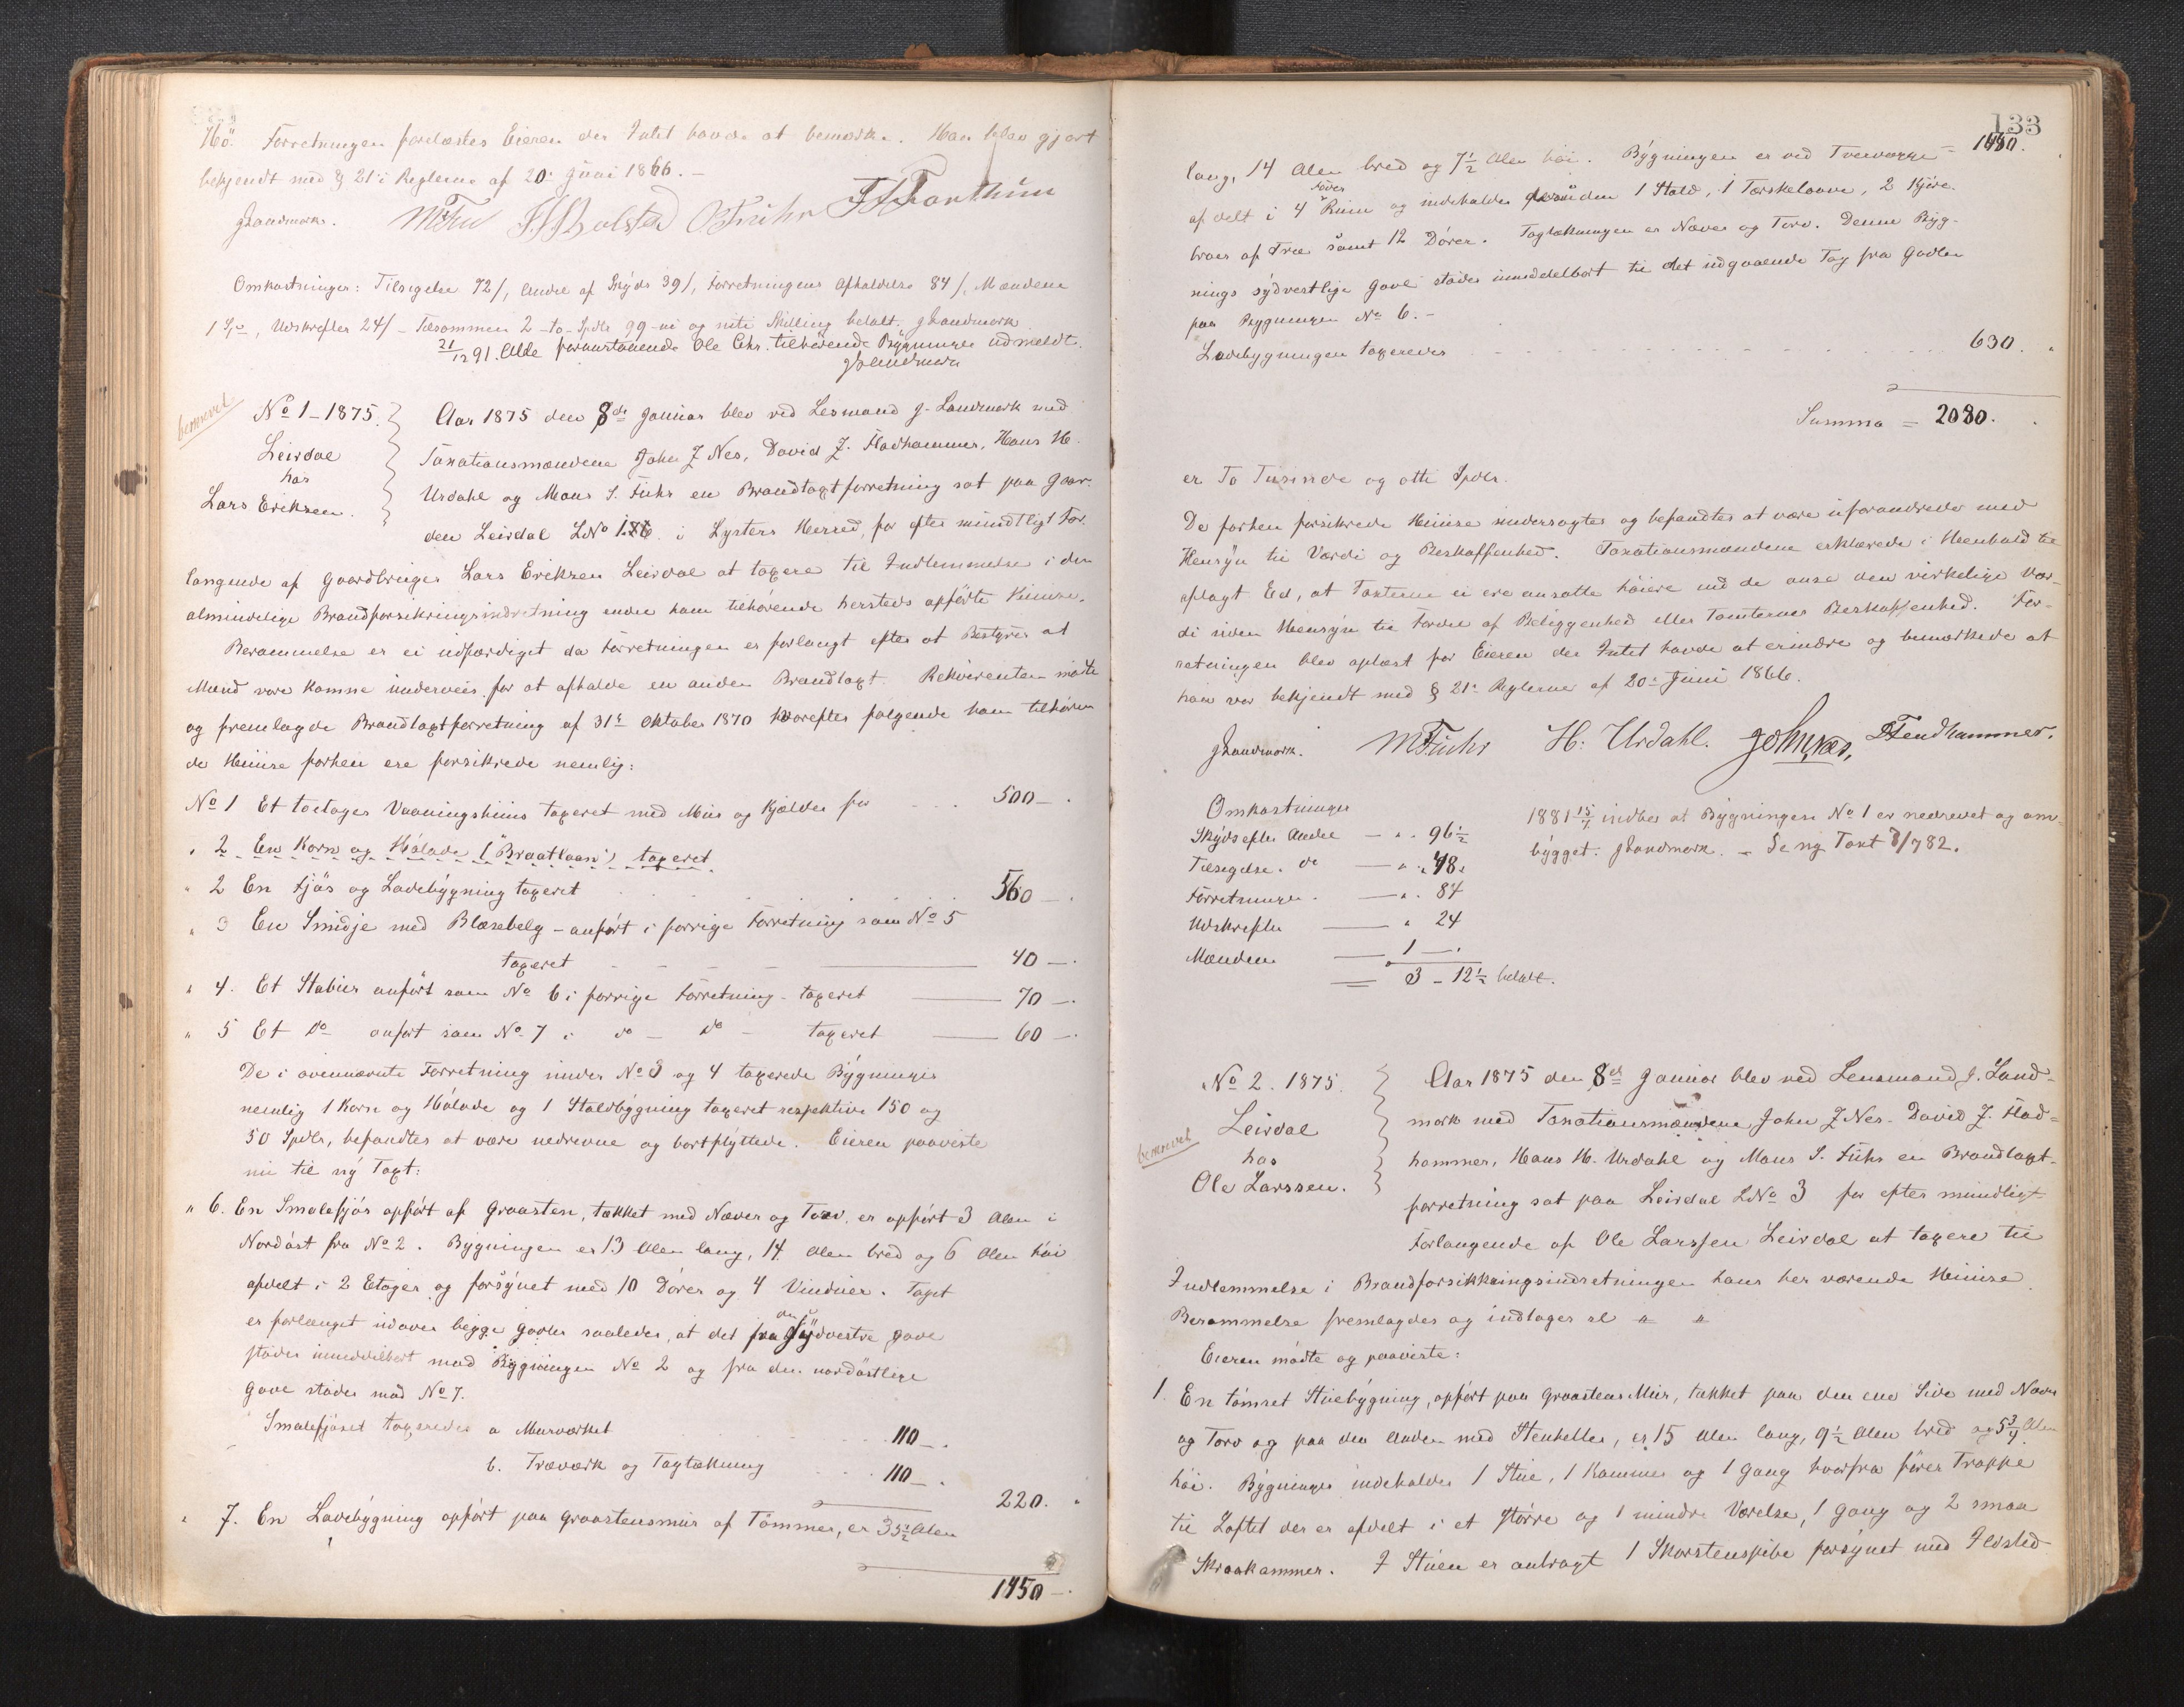 Hö. Forretningen forelæstes Eieren der Intet havde at bemærke. Han blev gjort
bekjendt med § 21 i Reglerne af 20. Juni 1866. —
J Landmork. M Fuhr O Fuhr
Omkostninger: Tilsigelse 72/, Andel af Skyds 39/, Forretningens Afholdelse 84/, Mændene
1 Spd, Udskrifter 24/ – Tilsammen 2 – to – Spdlr 99 – ni og niti Skilling betalt. J Landmork
21/12 91. Alle foranstaaende Ole Chr. tilhørende Bygninger udmeldt.
J Landmork
beskrevet
No 1 – 1875.
Leirdal
hos
Lars Eriksen.
Aar 1875 den 8de Januar blev ved Lensmand J. Landmork med
Taxationsmændene John J Nes, David J. Fladhammer, Hans H.
Urdahl og Mons S. Fuhr en Brandtaxtforretning sat paa Gaar-
den Leirdal LNo 126 i Lysters Herred, for efter mundtligt For-
langende af Gaardbruger Lars Eriksen Leirdal at taxere til Indlemmelse i den
almindelige Brandforsikringsindretning endee ham tilhørende hersteds opförte Huuse.
Berammelse er ei udfærdiget da Forretningen er forlangt efter at Bestyrer at
Mænd vare komne underveis for at afholde en anden Brandtaxt. Rekvirenten mødte
og fremlagde Brandtaxtforretning af 31te Oktober 1870 hvorefter følgende ham tilhøren
de Huuse forhen ere forsikrede nemlig:
No 1 Et toetages Vaaningshuus taxeret med Mur og Kjælder for . . . 500 – .
" 2 En Korn og Hölade ("Braatlaan") taxeret.
" 2 En Fjös og Ladebygning taxeret . . . 560 – .
" 3 En Smidje med Blæsebelg – anfört i forrige Forretning som No 5
taxeret – – – 40 – .
" 4. Et Stabur anfört som No 6 i forrige Forretning – taxeret 70 – .
" 5 Et Do anfört som No 7 i do – do – taxeret 60 – .
De i ovennævnte Forretning under No 3 og 4 taxerede Bygninger
nemlig 1 Korn og Hölade og 1 Staldbygning taxeret respektive 150 og
50 Spdlr, befandtes at være nedrevne og bortflyttede. Eieren paaviste
nu til ny Taxt:
" 6. En Smalefjös opfört af Graasten, tækket med Næver og Torv, er opfört 3 Alen i
Nordöst fra No 2. Bygningen er 13 Alen lang, 14 Alen bred og 6 Alen höi
afdelt i 2 Etager og forsynet med 10 Dörer og 4 Vinduer. Taget
er forlænget udover begge Gavler saaledes, at det fra den Sydvestre Gavl
stöder umiddelbart mod Bygningen No 2 og fra den nordöstlige
Gavl stöder mod No 7.
Smalefjöset taxeredes a Murværket . . . 110 – .
b. Træværk og Tagtækning . . . 110 – .
220.
" 7. En Ladebygning opfört paa Graastensmur af Tömmer, er 35½ Alen
1450 – .
133
1450.
lang, 14 Alen bred og 7½ Alen höi. Bygningen er ved Tvervægge
afdelt i 4 Rum og indeholder desuden 1 Stald, 1 Tærskelaave, 2 Kjöre-
broer af Træ samt 12 Dörer. Tagtækningen er Næver og Torv. Denne Byg-
nings sydvestlige Gavl stöder umiddelbart til det udgaaende Tag fra Gavlen
paa Bygningen No 6. –
Ladebygningen taxeredes 630.
Summa = 2080.
er To Tusinde og otti Spdlr.
De forhen forsikrede Huuse undersøgtes og befandtes at være uforandrede med
Hensyn til Værdi og Beskaffenhed. Taxationsmændene erklærede i Henhold til
aflagt Ed, at Taxterne ei ere ansatte höiere end de anse den virkelige Vær-
di uden Hensyn til Fordel af Beliggenhed eller Tomternes Beskaffenhed. For-
retningen blev oplæst for Eieren der Intet havde at erindre og bemærkede at
han var bekjendt med § 21 i Reglerne af 20de Juni 1866.
J Landmork. M Fuhr H: Urdahl. John Nes,
Omkostninger
Skyds efter Andel – " . 96½
Tilsigelse. do – " . 48.
Forretningen . – " . 84
Udskrifter – " 24
Mændene – 1 – .
= 3 – 12½ betalt.
1881 15/4 indber at Bygningen No 1 er nedrevet og om-
bygget. J Landmork. – Se ny Taxt 8/7 82.
beskrevet
No 2. 1875.
Leirdal
hos
Ole Larssen.
Aar 1875 den 8de Januar blev ved Lensmand J. Land-
mork med Taxationsmændene John J Nes. David J. Flad-
hammer, Hans H. Urdahl og Mons S. Fuhr en Brandtaxt-
forretning sat paa Leirdal LNo 3 for efter mundtligt
Forlangende af Ole Larssen Leirdal at taxere til
Indlemmelse i Brandforsikkringsindretningen hans her værende Huuse
Berammelse fremlagdes og indtages sl " "
Eieren mødte og paaviste:
1. En tömret Stuebygning, opfört paa Graastens Mur, tækket paa den ene Side med Næver
og Torv og paa den Anden med Stenheller, er 15 Alen lang, 9½ Alen bred og 5¾ Alen
höi. Bygningen indeholder 1 Stue, 1 Kammer og 1 Gang hvorfra förer Trappe
til Loftet der er afdelt i et större og 1 mindre Værelse, 1 Gang og 2 smaa
Skraakammer. I Stuen er anbragt 1 Skorstenspibe forsynet med Ildsted